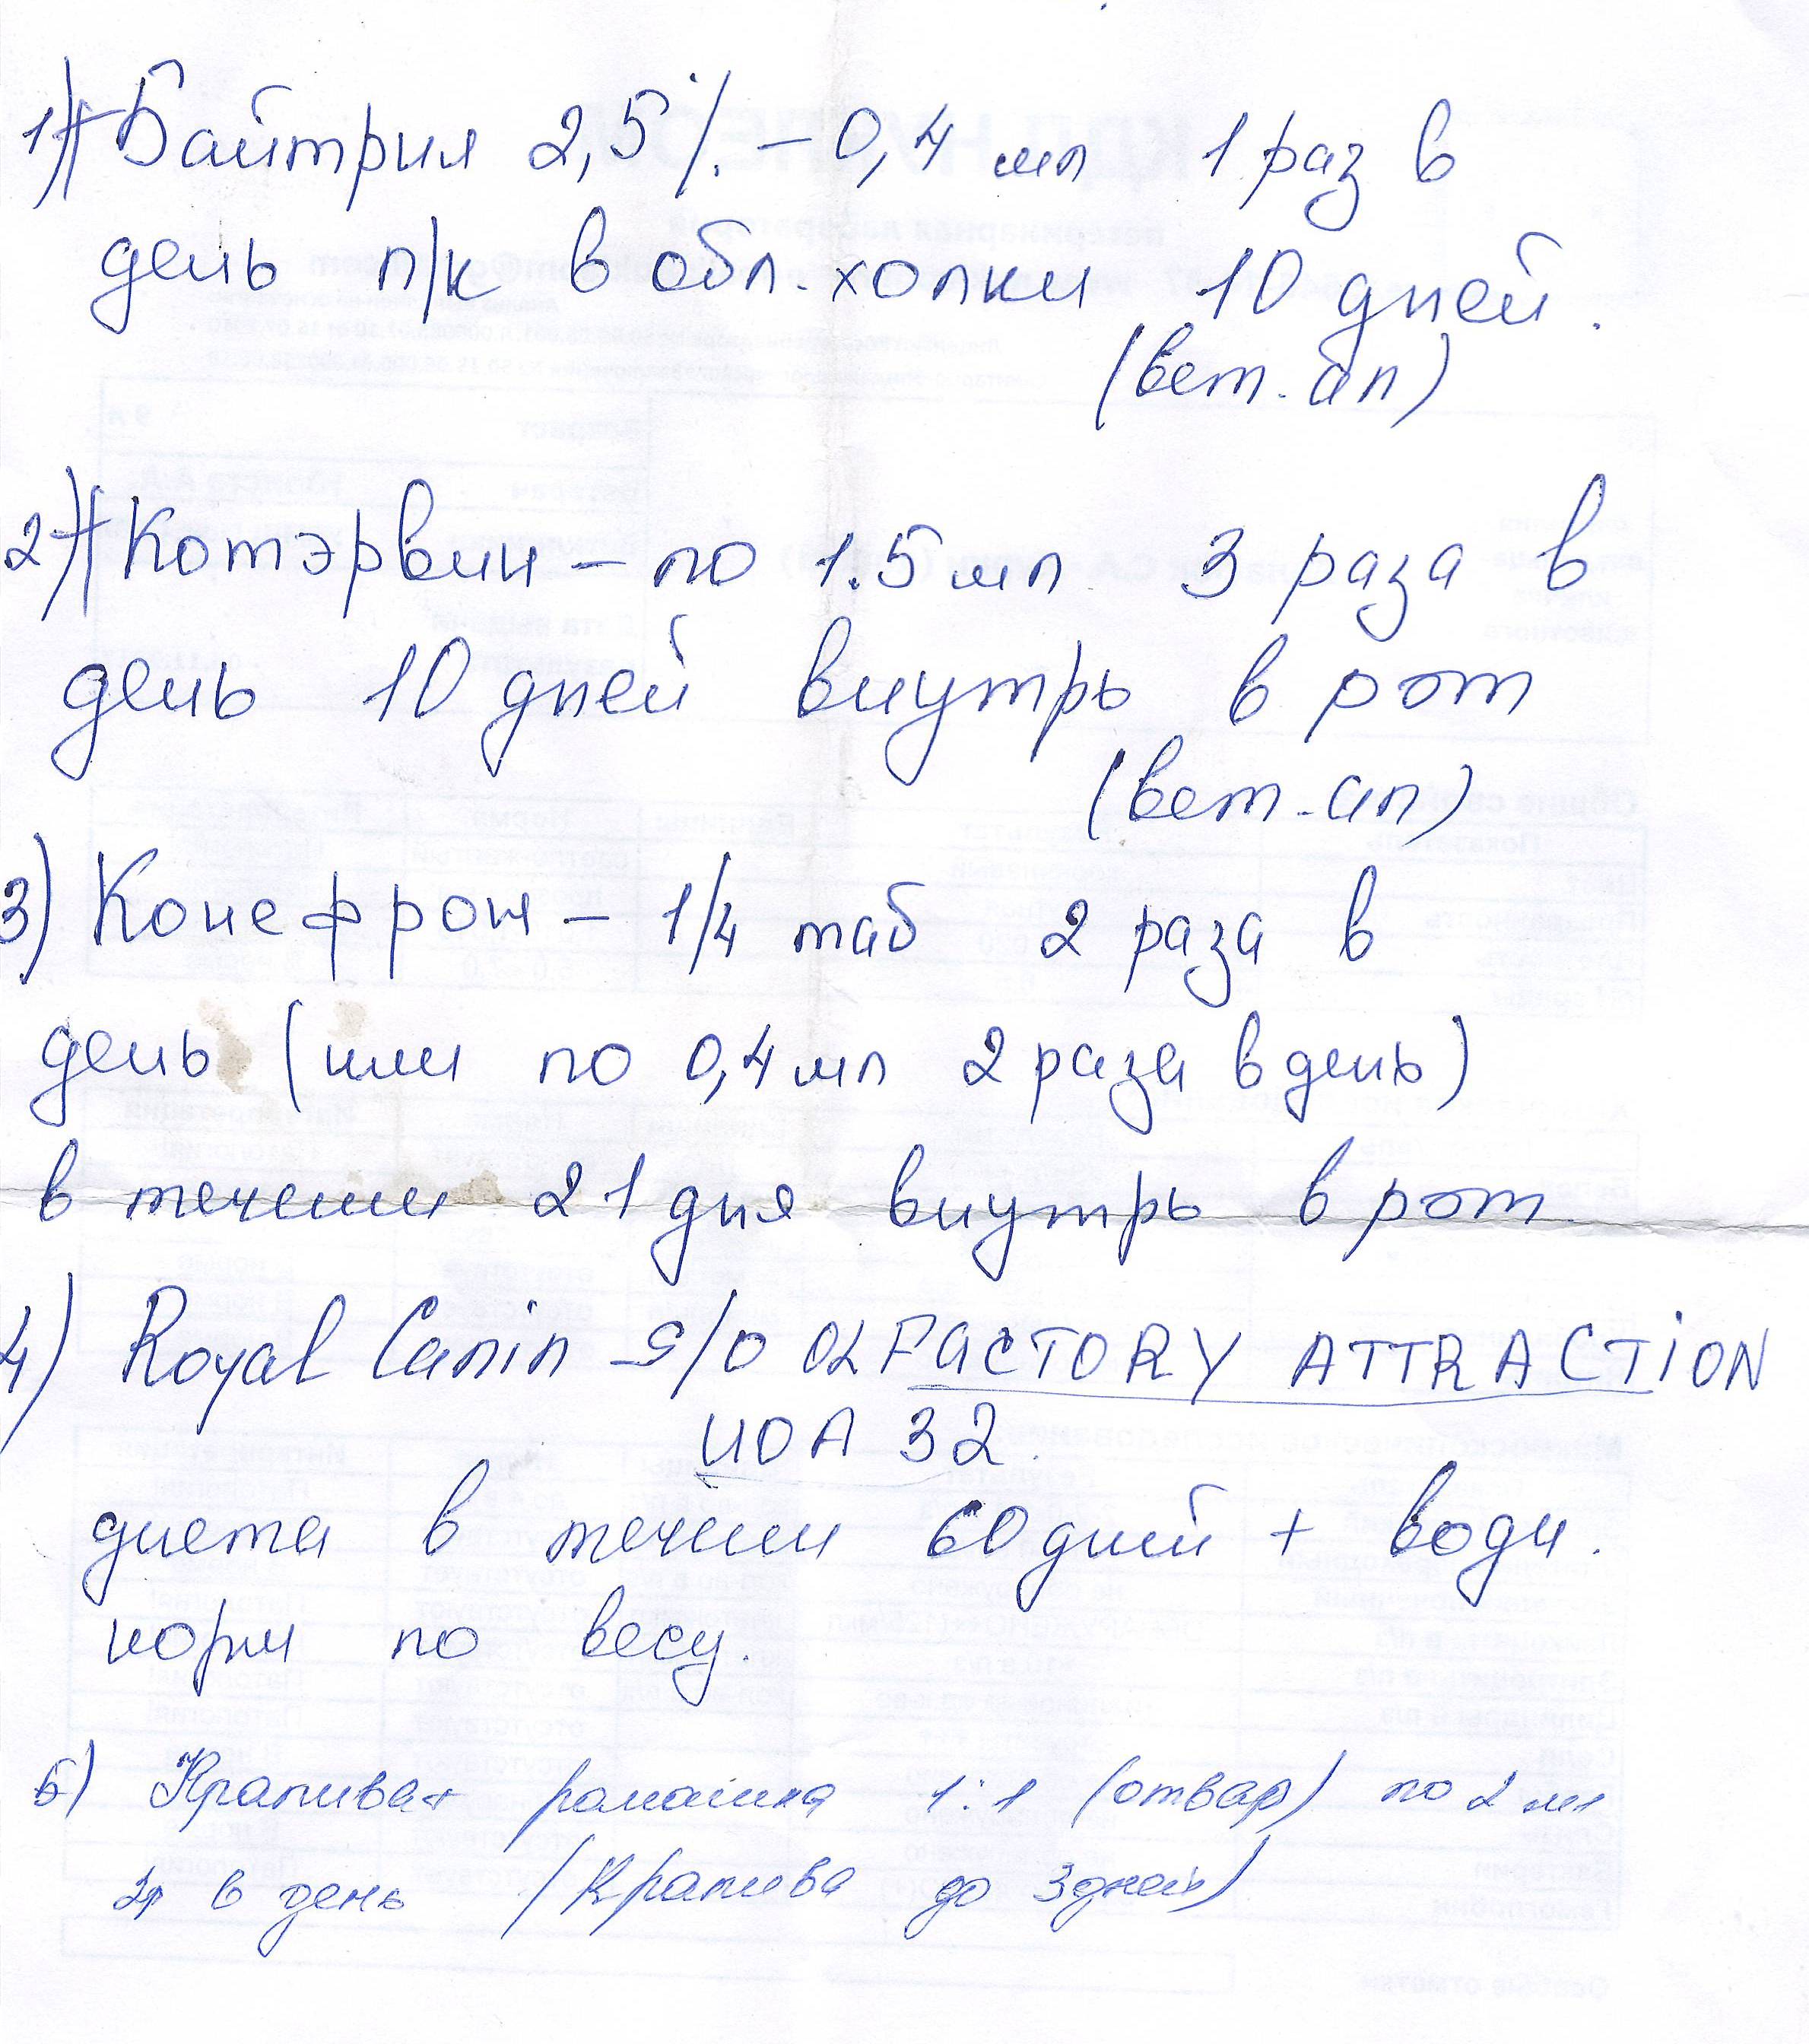 1) Байтрил 2,5% – 0,4 мл 1 раз в
день п/к в обл. холки 10 дней.
(вет. ап)
2) Котэрвин – по 1.5 мл 3 раза в
день 10 дней внутрь в рот
(вет. ап)
3) Конефрон – 1/4 таб 2 раза в
день (или по 0,4 мл 2 раза в день)
в течении 21 дня внутрь в рот
4) Royal Canin S/O OLFACTORY ATTRACTION
UOA 32.
диета в течении 60 дней + води.
норм по весу.
5) Крапива + ромашка 1:1 (отвар) по 2 мл
в день (Крапива до 3 дней)